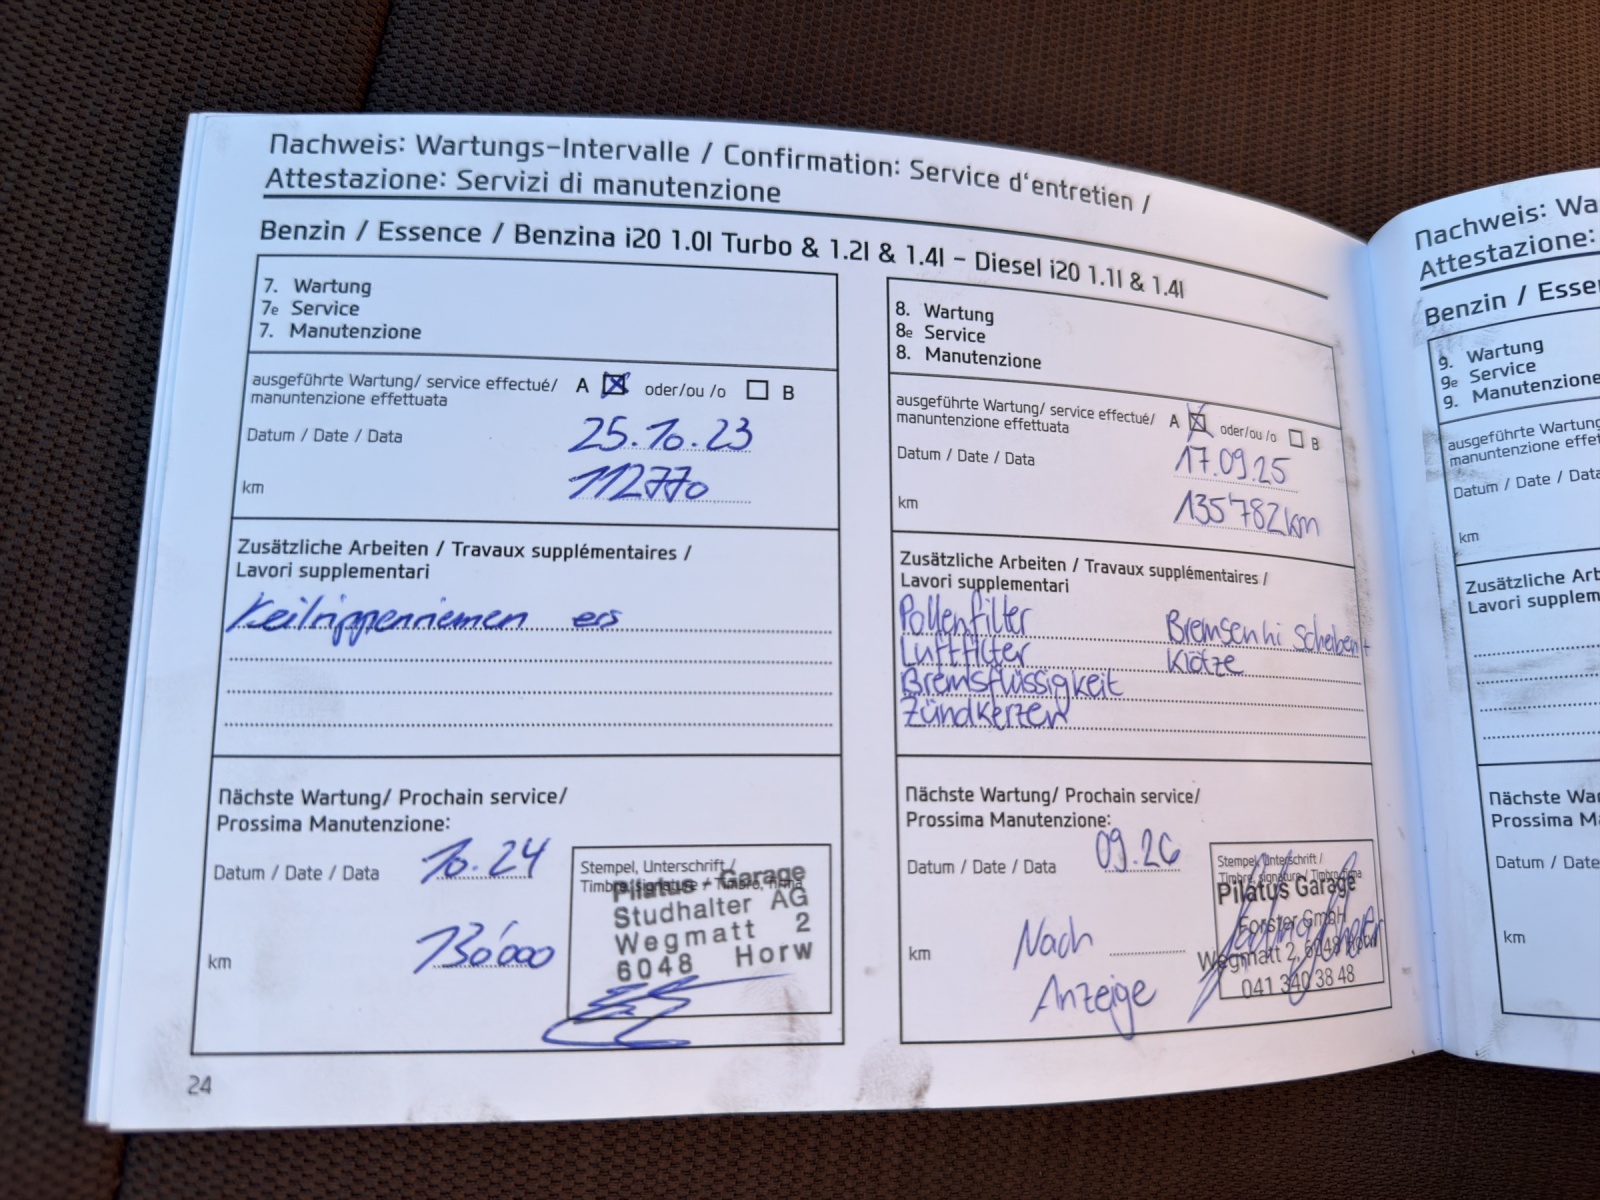 Nachweis: Wartungs-Intervalle / Confirmation: Service d'entretien /
Attestazione: Servizi di manutenzione
Benzin / Essence / Benzina i20 1.0l Turbo & 1.2l & 1.4l - Diesel i20 1.1l & 1.4l
7. Wartung
7e Service
7. Manutenzione
ausgeführte Wartung/ service effectué/ A ☒ oder/ou /o ☐ B
manuntenzione effettuata
Datum / Date / Data 25.10.23
km 112770
Zusätzliche Arbeiten / Travaux supplémentaires /
Lavori supplementari
Keilrippenriemen ers
Nächste Wartung/ Prochain service/
Prossima Manutenzione:
Datum / Date / Data 10.24
km 130'000
Stempel, Unterschrift /
Timbre, signature / Timbro, firma
Pilatus Garage
Studhalter AG
Wegmatt 2
6048 Horw
24
8. Wartung
8e Service
8. Manutenzione
ausgeführte Wartung/ service effectué/ A ☒ oder/ou /o ☐ B
manuntenzione effettuata
Datum / Date / Data 17.09.25
km 135'782 km
Zusätzliche Arbeiten / Travaux supplémentaires /
Lavori supplementari
Pollenfilter Bremsen hi Scheiben +
Luftfilter Klötze
Bremsflüssigkeit
Zündkerzen
Nächste Wartung/ Prochain service/
Prossima Manutenzione:
Datum / Date / Data 09.26
km Nach
Anzeige
Stempel, Unterschrift /
Timbre, signature / Timbro, firma
Pilatus Garage
Forster GmbH
Wegmatt 2, 6048 Horw
041 340 38 48
Nachweis: Wa
Attestazione:
Benzin / Esse
9. Wartung
9e Service
9. Manutenzione
ausgeführte Wartung
manuntenzione effet
Datum / Date / Data
km
Zusätzliche Arb
Lavori supplem
Nächste Wa
Prossima M
Datum / Date
km